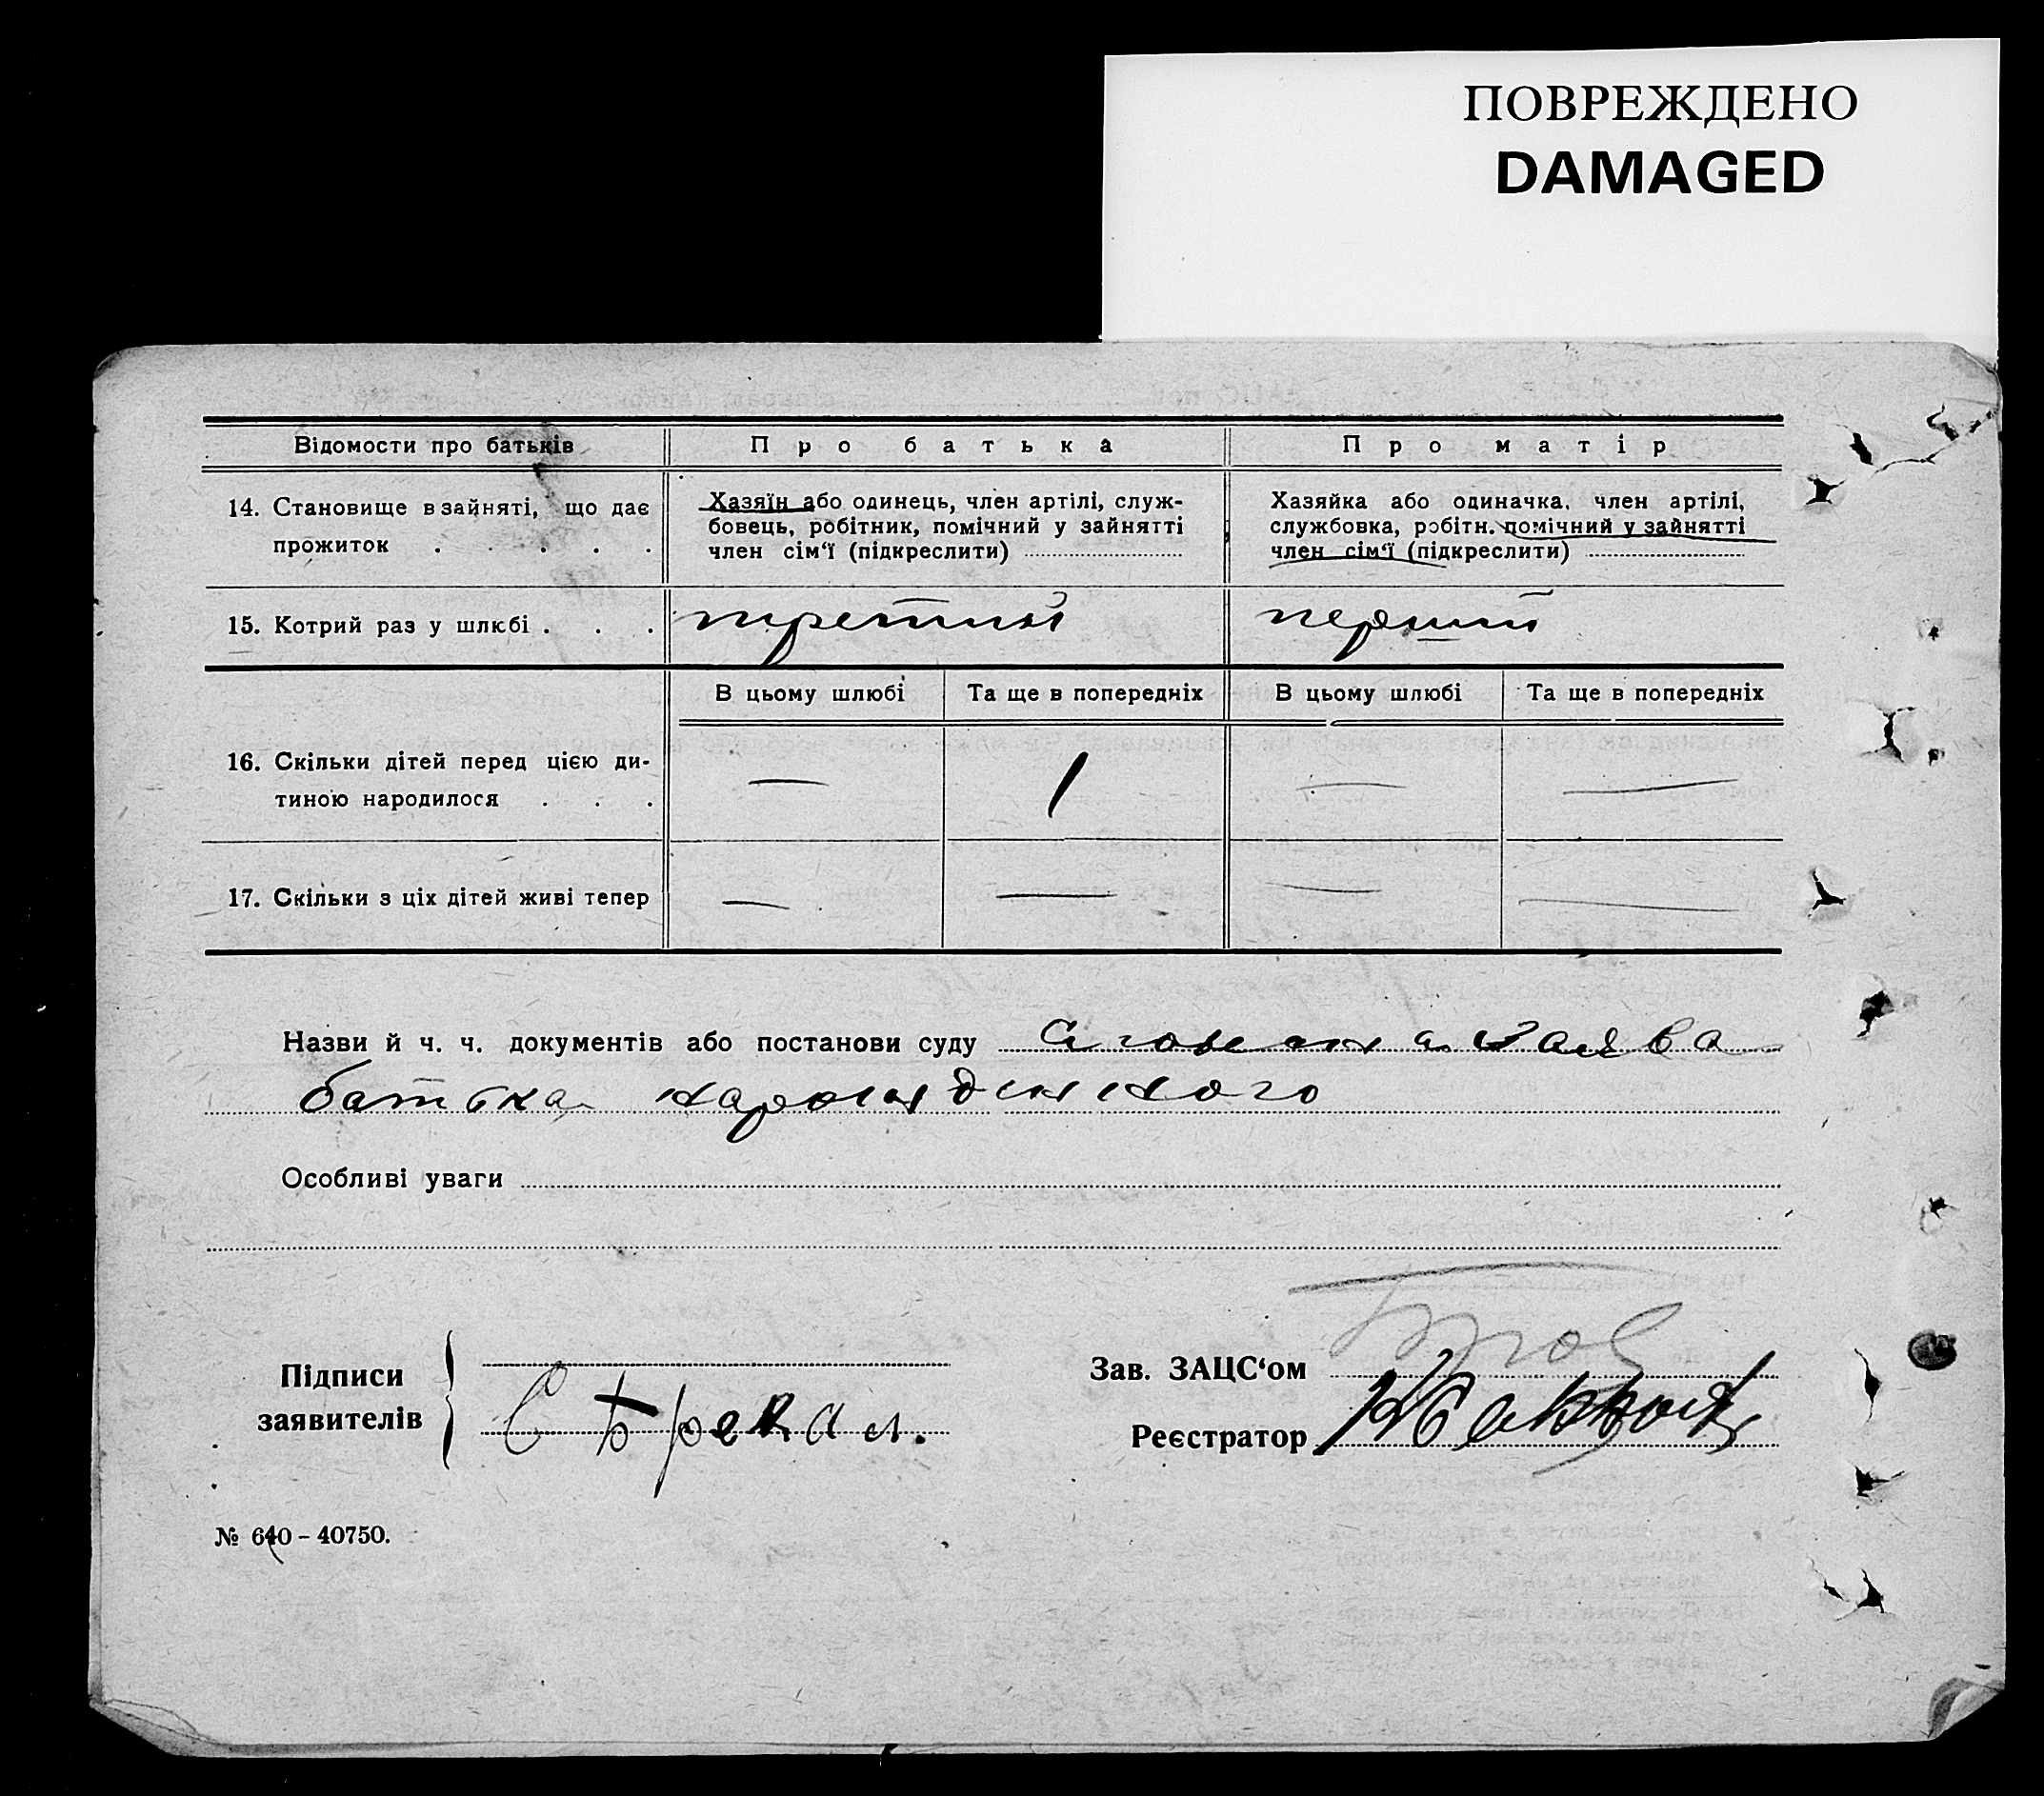 ПОВРЕЖДЕНО
DAMAGED
Відомости про батьків
Про батька
Про матір
14. Становище в зайняті, що дає
прожиток . . . . .
Хазяїн або одинець, член артілі, служ-
бовець, робітник, помічний у зайнятті
член сім‘ї (підкреслити)
Хазяйка або одиначка, член артілі,
службовка, робітн. помічний у зайнятті
член сім‘ї (підкреслити)
15. Котрий раз у шлюбі . . .
третий
перший
В цьому шлюбі
Та ще в попередніх
В цьому шлюбі
Та ще в попередніх
16. Скільки дітей перед цією ди-
тиною народилося . . .
— 1 — —
17. Скільки з ціх дітей живі тепер
— — — —
Назви й ч. ч. документів або постанови суду заява
батька народженного
Особливі уваги
Підписи
заявителів
С Брекал.
Зав. ЗАЦС‘ом
Реєстратор
№ 640 – 40750.